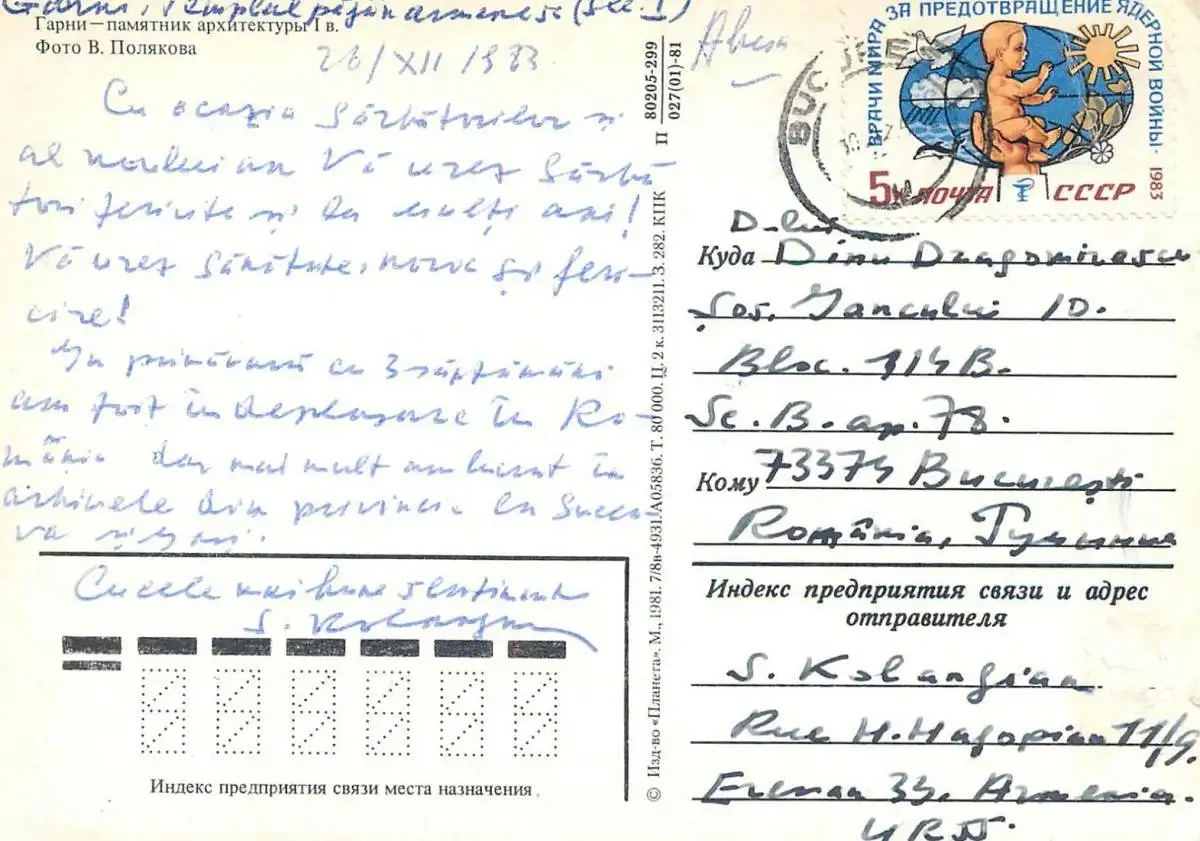 Garni, Templul păgân armenesc (sec. I)
Гарни — памятник архитектуры I в.
Фото В. Полякова
26/XII 1983.
Cu ocazia Sărbătorilor și
al noului an Vă urez Sărbă
tori fericite și La mulți ani!
Vă urez Sănătate, noroc și feri-
cire!
In primăvară cu 3 săptămâni
am fost în deplasare în Ro-
mânia dar mai mult am lucrat în
arhivele din provincie la Sucea-
va și Iași.
Cu cele mai bune sentimente
S. Kolangian
Индекс предприятия связи места назначения
П 80205-299
027(01)-81
© Изд-во «Планета». М., 1981. 7/8в-4931. А05836. Т. 80 000. Ц. 2 к. 3113211. З. 282. КПК
ВРАЧИ МИРА ЗА ПРЕДОТВРАЩЕНИЕ ЯДЕРНОЙ ВОЙНЫ·
1983
5к ПОЧТА СССР
BUC
D-lui
Куда Dinu Dragomirescu
Șos. Iancului 10.
Bloc. 114B.
Sc. B. ap. 78.
Кому 73374 București
România, Румыния
Индекс предприятия связи и адрес
отправителя
S. Kolangian
Rue H. Hagopian 11/9.
Erevan 33, Armenia.
URSS.